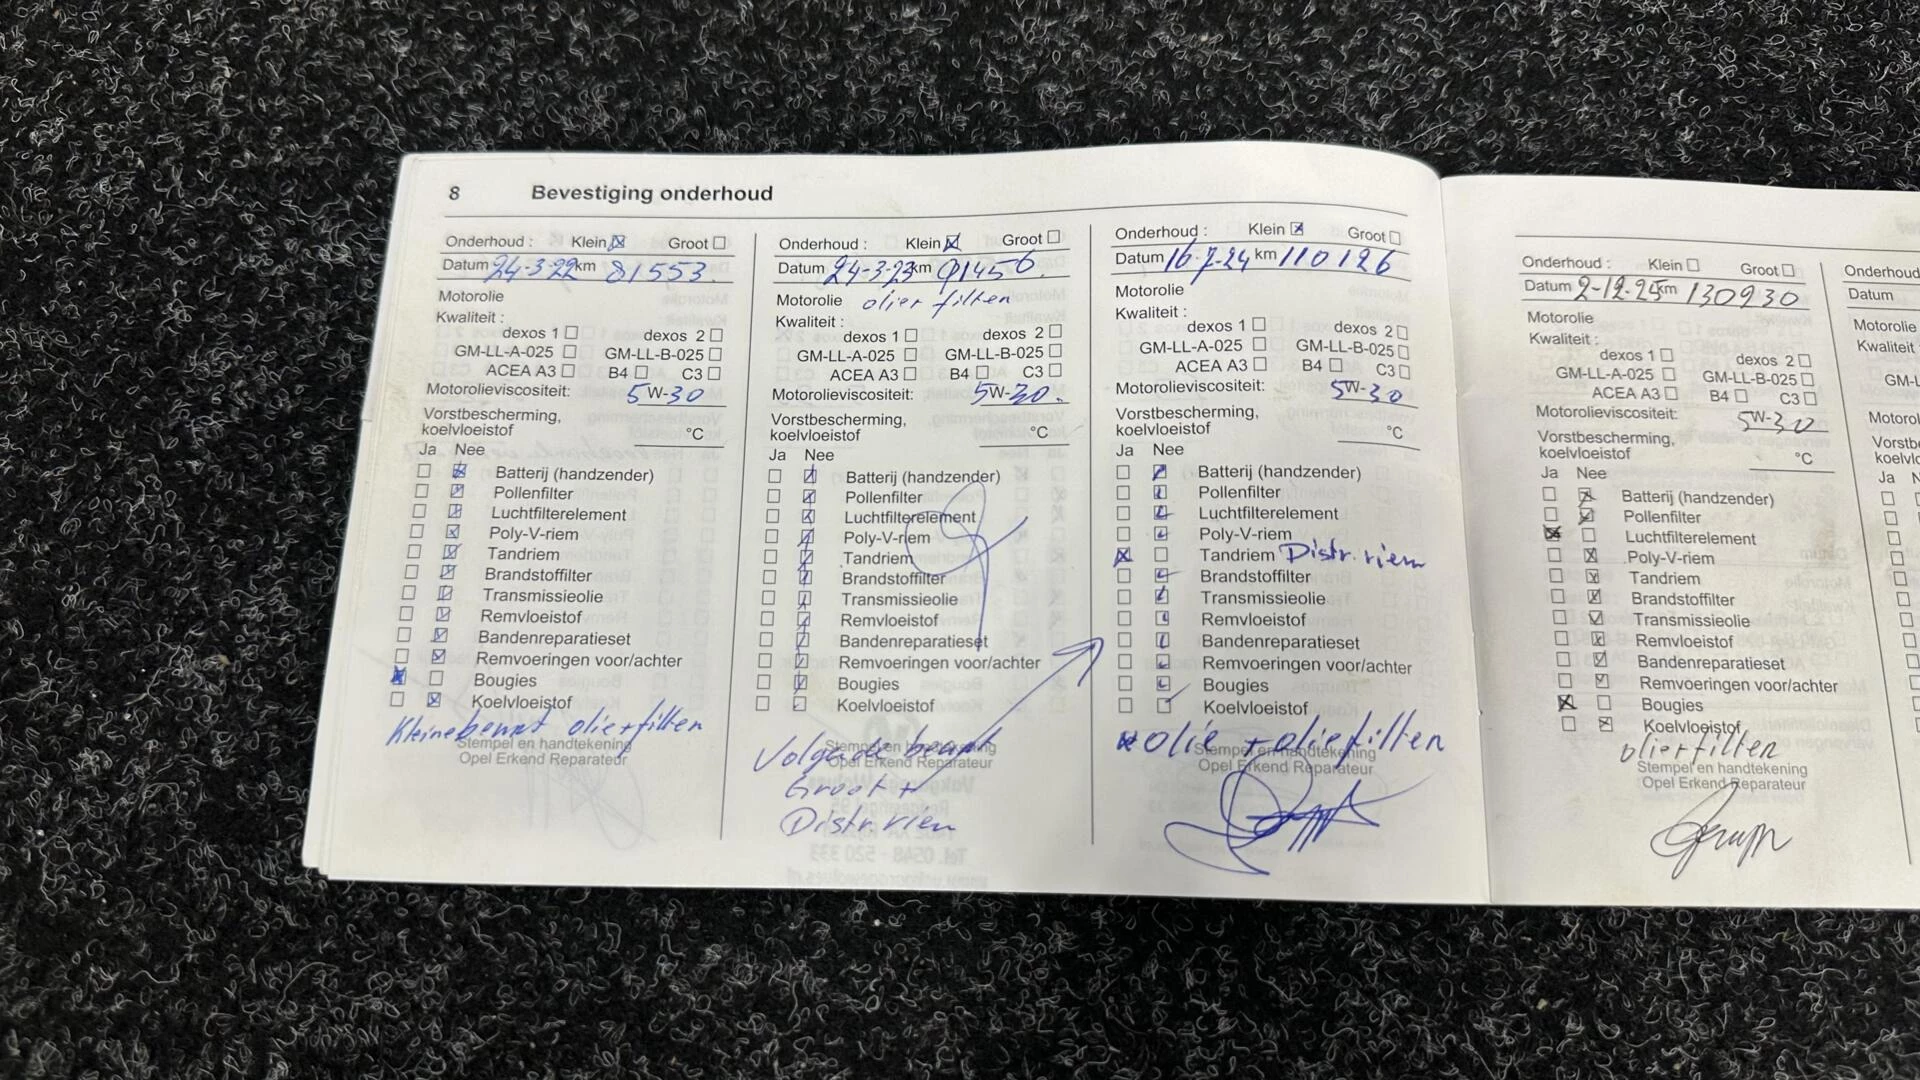 8 Bevestiging onderhoud
Onderhoud : Klein Groot
Datum 24-3-22 km 81553.
Motorolie
Kwaliteit :
dexos 1 dexos 2
GM-LL-A-025 GM-LL-B-025
ACEA A3 B4 C3
Motorolieviscositeit: 5W-30
Vorstbescherming,
koelvloeistof °C
Ja Nee
Batterij (handzender)
Pollenfilter
Luchtfilterelement
Poly-V-riem
Tandriem
Brandstoffilter
Transmissieolie
Remvloeistof
Bandenreparatieset
Remvoeringen voor/achter
Bougies
Koelvloeistof
Kleinebeurt olie+filter
Stempel en handtekening
Opel Erkend Reparateur
Onderhoud : Klein Groot
Datum 24-3-23 km 91456.
Motorolie olie+filter
Kwaliteit :
dexos 1 dexos 2
GM-LL-A-025 GM-LL-B-025
ACEA A3 B4 C3
Motorolieviscositeit: 5W-30.
Vorstbescherming,
koelvloeistof °C
Ja Nee
Batterij (handzender)
Pollenfilter
Luchtfilterelement
Poly-V-riem
Tandriem
Brandstoffilter
Transmissieolie
Remvloeistof
Bandenreparatieset
Remvoeringen voor/achter
Bougies
Koelvloeistof
Stempel en handtekening
Volgende beurt
Opel Erkend Reparateur
Groot +
Distr.riem
Onderhoud : Klein Groot
Datum 16-7-24 km 110126
Motorolie
Kwaliteit :
dexos 1 dexos 2
GM-LL-A-025 GM-LL-B-025
ACEA A3 B4 C3
Motorolieviscositeit: 5W-30
Vorstbescherming,
koelvloeistof °C
Ja Nee
Batterij (handzender)
Pollenfilter
Luchtfilterelement
Poly-V-riem
Tandriem Distr.riem
Brandstoffilter
Transmissieolie
Remvloeistof
Bandenreparatieset
Remvoeringen voor/achter
Bougies
Koelvloeistof
olie + oliefilter
Stempel en handtekening
Opel Erkend Reparateur
Onderhoud : Klein Groot
Datum 2-12-25 km 130930
Motorolie
Kwaliteit :
dexos 1 dexos 2
GM-LL-A-025 GM-LL-B-025
ACEA A3 B4 C3
Motorolieviscositeit: 5W-30
Vorstbescherming,
koelvloeistof °C
Ja Nee
Batterij (handzender)
Pollenfilter
Luchtfilterelement
Poly-V-riem
Tandriem
Brandstoffilter
Transmissieolie
Remvloeistof
Bandenreparatieset
Remvoeringen voor/achter
Bougies
Koelvloeistof
olie+filter
Stempel en handtekening
Opel Erkend Reparateur
Onderhoud
Datum
Motorolie
Kwaliteit
Ja